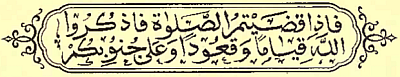 فَاِذَا قَضَيْتُمُ الصَّلٰوةَ فَاذْكُرُوا
اللّٰهَ قِيَامًا وَقُعُودًا وَعَلٰى جُنُوبِكُمْ